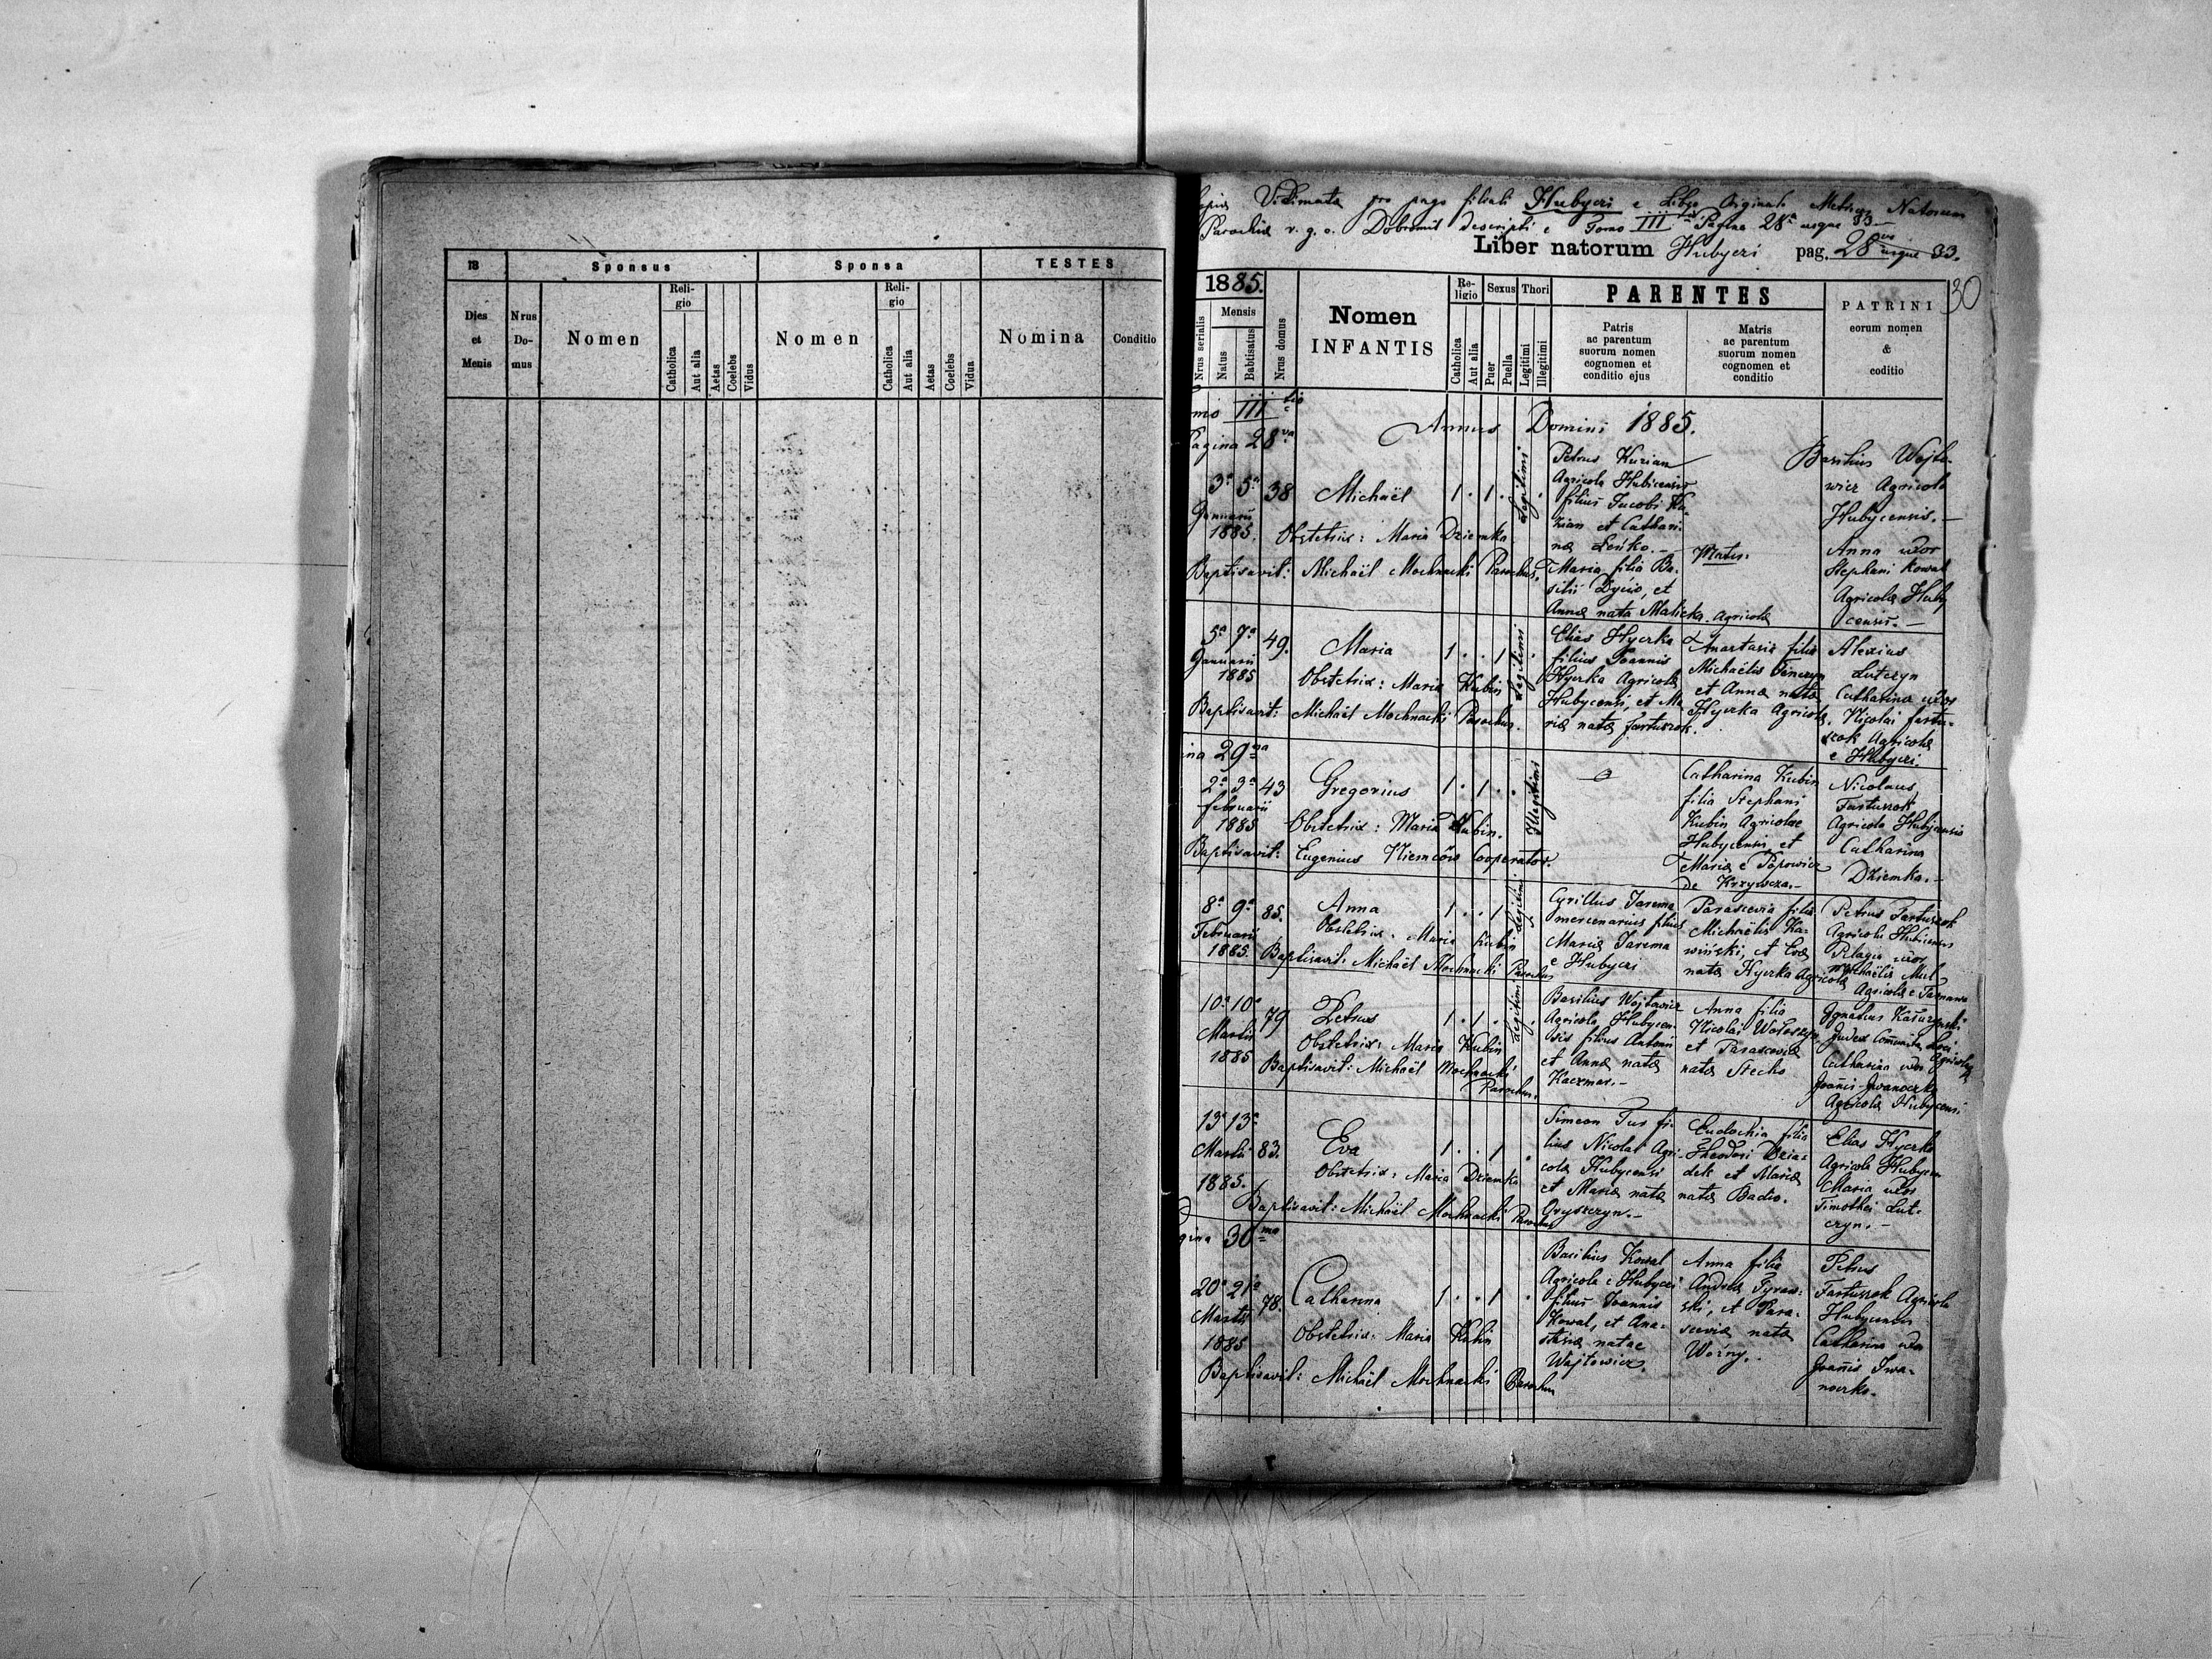 18
Sponsus
Sponsa
TESTES
Dies et Menis
Nrus Domus
Nomen
Religio
Catholica
Aut alia
Aetas
Coelebs
Vidus
Nomen
Religio
Catholica
Aut alia
Aetas
Coelebs
Vidua
Nomina
Conditio
Vidimata pro pago filiali Hubycri e Libro Originali Metrices Natorum
Parochiæ r. g. c. Dobromil descripti e Tomo III Pagina 28a usque 33
Liber natorum Hubycri pag. 28 usque 33.
30
1885.
Nrus serialis
Mensis
Natus
Babtisatus
Nrus domus
Nomen
INFANTIS
Religio
Catholica
Aut alia
Sexus
Puer
Puella
Thori
Legitimi
Illegitimi
PARENTES
Patris
ac parentum
suorum nomen
cognomen et
conditio ejus
Matris
ac parentum
suorum nomen
cognomen et
conditio
PATRINI
eorum nomen
&
coditio
mo III tio
Pagina 28va
Annus Domini 1885.
3a 5a 38 Michaël 1 . 1 . Legitimi .
Januarii
1885.
Obstetrix: Maria Dziemka
Baptisavit: Michaël Mochnacki Parochus.
Petrus Kuzian
Agricola Hubicensis
filius Jacobi Ku-
zian et Cathari-
næ Leśko. —
Mater.
Maria filia Ba-
silii Dycio, et
Annæ nata Malicka Agricolæ
Basilius Wojto-
wicz Agricola
Hubycensis. —
Anna uxor
Stephani Kowal
Agricolæ Huby
censis. —
5a 7a 49. Maria 1 . . 1 Legitimi .
Januarii
1885
Obstetrix: Maria Kubin
Baptisavit: Michaël Mochnacki Parochus.
Elias Hycrka
filius Joannis
Hycrka Agricolæ
Hubycensi, et Ma
riæ natæ Fartuszok.
Anastasia filia
Michaëlis
et Annæ natæ
Hycrka Agricolæ.
Alexius
Lutczyn
Catharina uxor
Nicolai Fartu-
szok Agricolæ
e Hubycri.
ina 29na
2a 3a 43 Gregorius 1 . 1 . . Illegitimi
Februarii
1885
Obstetrix: Maria Kubin.
Baptisavit: Eugenius Niemców Cooperator.
Catharina Kubin
filia Stephani
Kubin Agricolae
Hubycensis et
Mariæ e Popowicz
de Krzywcza. —
Nicolaus
Fartuszok
Agricola Hubycensis
Catharina
Dziemka. —
8a 9a 85. Anna 1 . . 1 Legitimi
Februarii
1885.
Obstetrix. Maria Kubin
Baptisavit: Michaël Mochnacki Parochus
Cyrillus Jarema
mercenarius filius
Mariæ Jarema
e Hubycri
Parascevia filia
Michaëlis Ka-
wiński, et Evæ
natæ Hycrka Agricolæ
Petrus Fartuszok
Agricola Hubicensis
Pelagia uxor
Michaëlis
Agricolæ e Tarnawa
10a 10a 79 Petrus 1 . 1 . Legitimi .
Martii
1885
Obstetrix: Maria Kubin
Baptisavit: Michaël Mochnacki
Parochus.
Basilius Wojtowicz
Agricola Hubycen-
sis filius Antonii
et Annæ natæ
Kaczmar. —
Anna filia
Nicolai Wołoszyn
et Parasceviæ
natæ Stecko
Ignatius
Judex Loci
Agricola
Catharina uxor
Joannis Iwanoczko
Agricolæ Hubycensi
13a 13a
Martii 83. Eva 1 . . 1 .
1885.
Obstetrix: Maria Dziemka
Baptisavit: Michaël Mochnacki Parochus
Simeon Tus fi-
lius Nicolai Agri-
colæ Hubycensi
et Mariæ natæ
Gryszczyn. —
Eudochia filia
Theodori Dzia-
dek et Mariæ
natæ Badio.
Elias Hycrka
Agricola Hubycen
Maria uxor
Timothei Lut-
czyn. —
gina 30ma
20a 21a 78. Catharina 1 . . 1 .
Martii
1885
Obstetrix: Maria Kubin
Baptisavit: Michaël Mochnacki Parochus
Basilius Kowal
Agricola e Hubycri
filius Joannis
Kowal, et Ana-
stasiæ natae
Wojtowicz.
Anna filia
Andreæ Tyraw-
ski, et Para-
sceviæ natæ
Woźny.
Petrus
Fartuszok Agricola
Hubycensis
Catharina uxor
Joannis Iwa-
noczko.